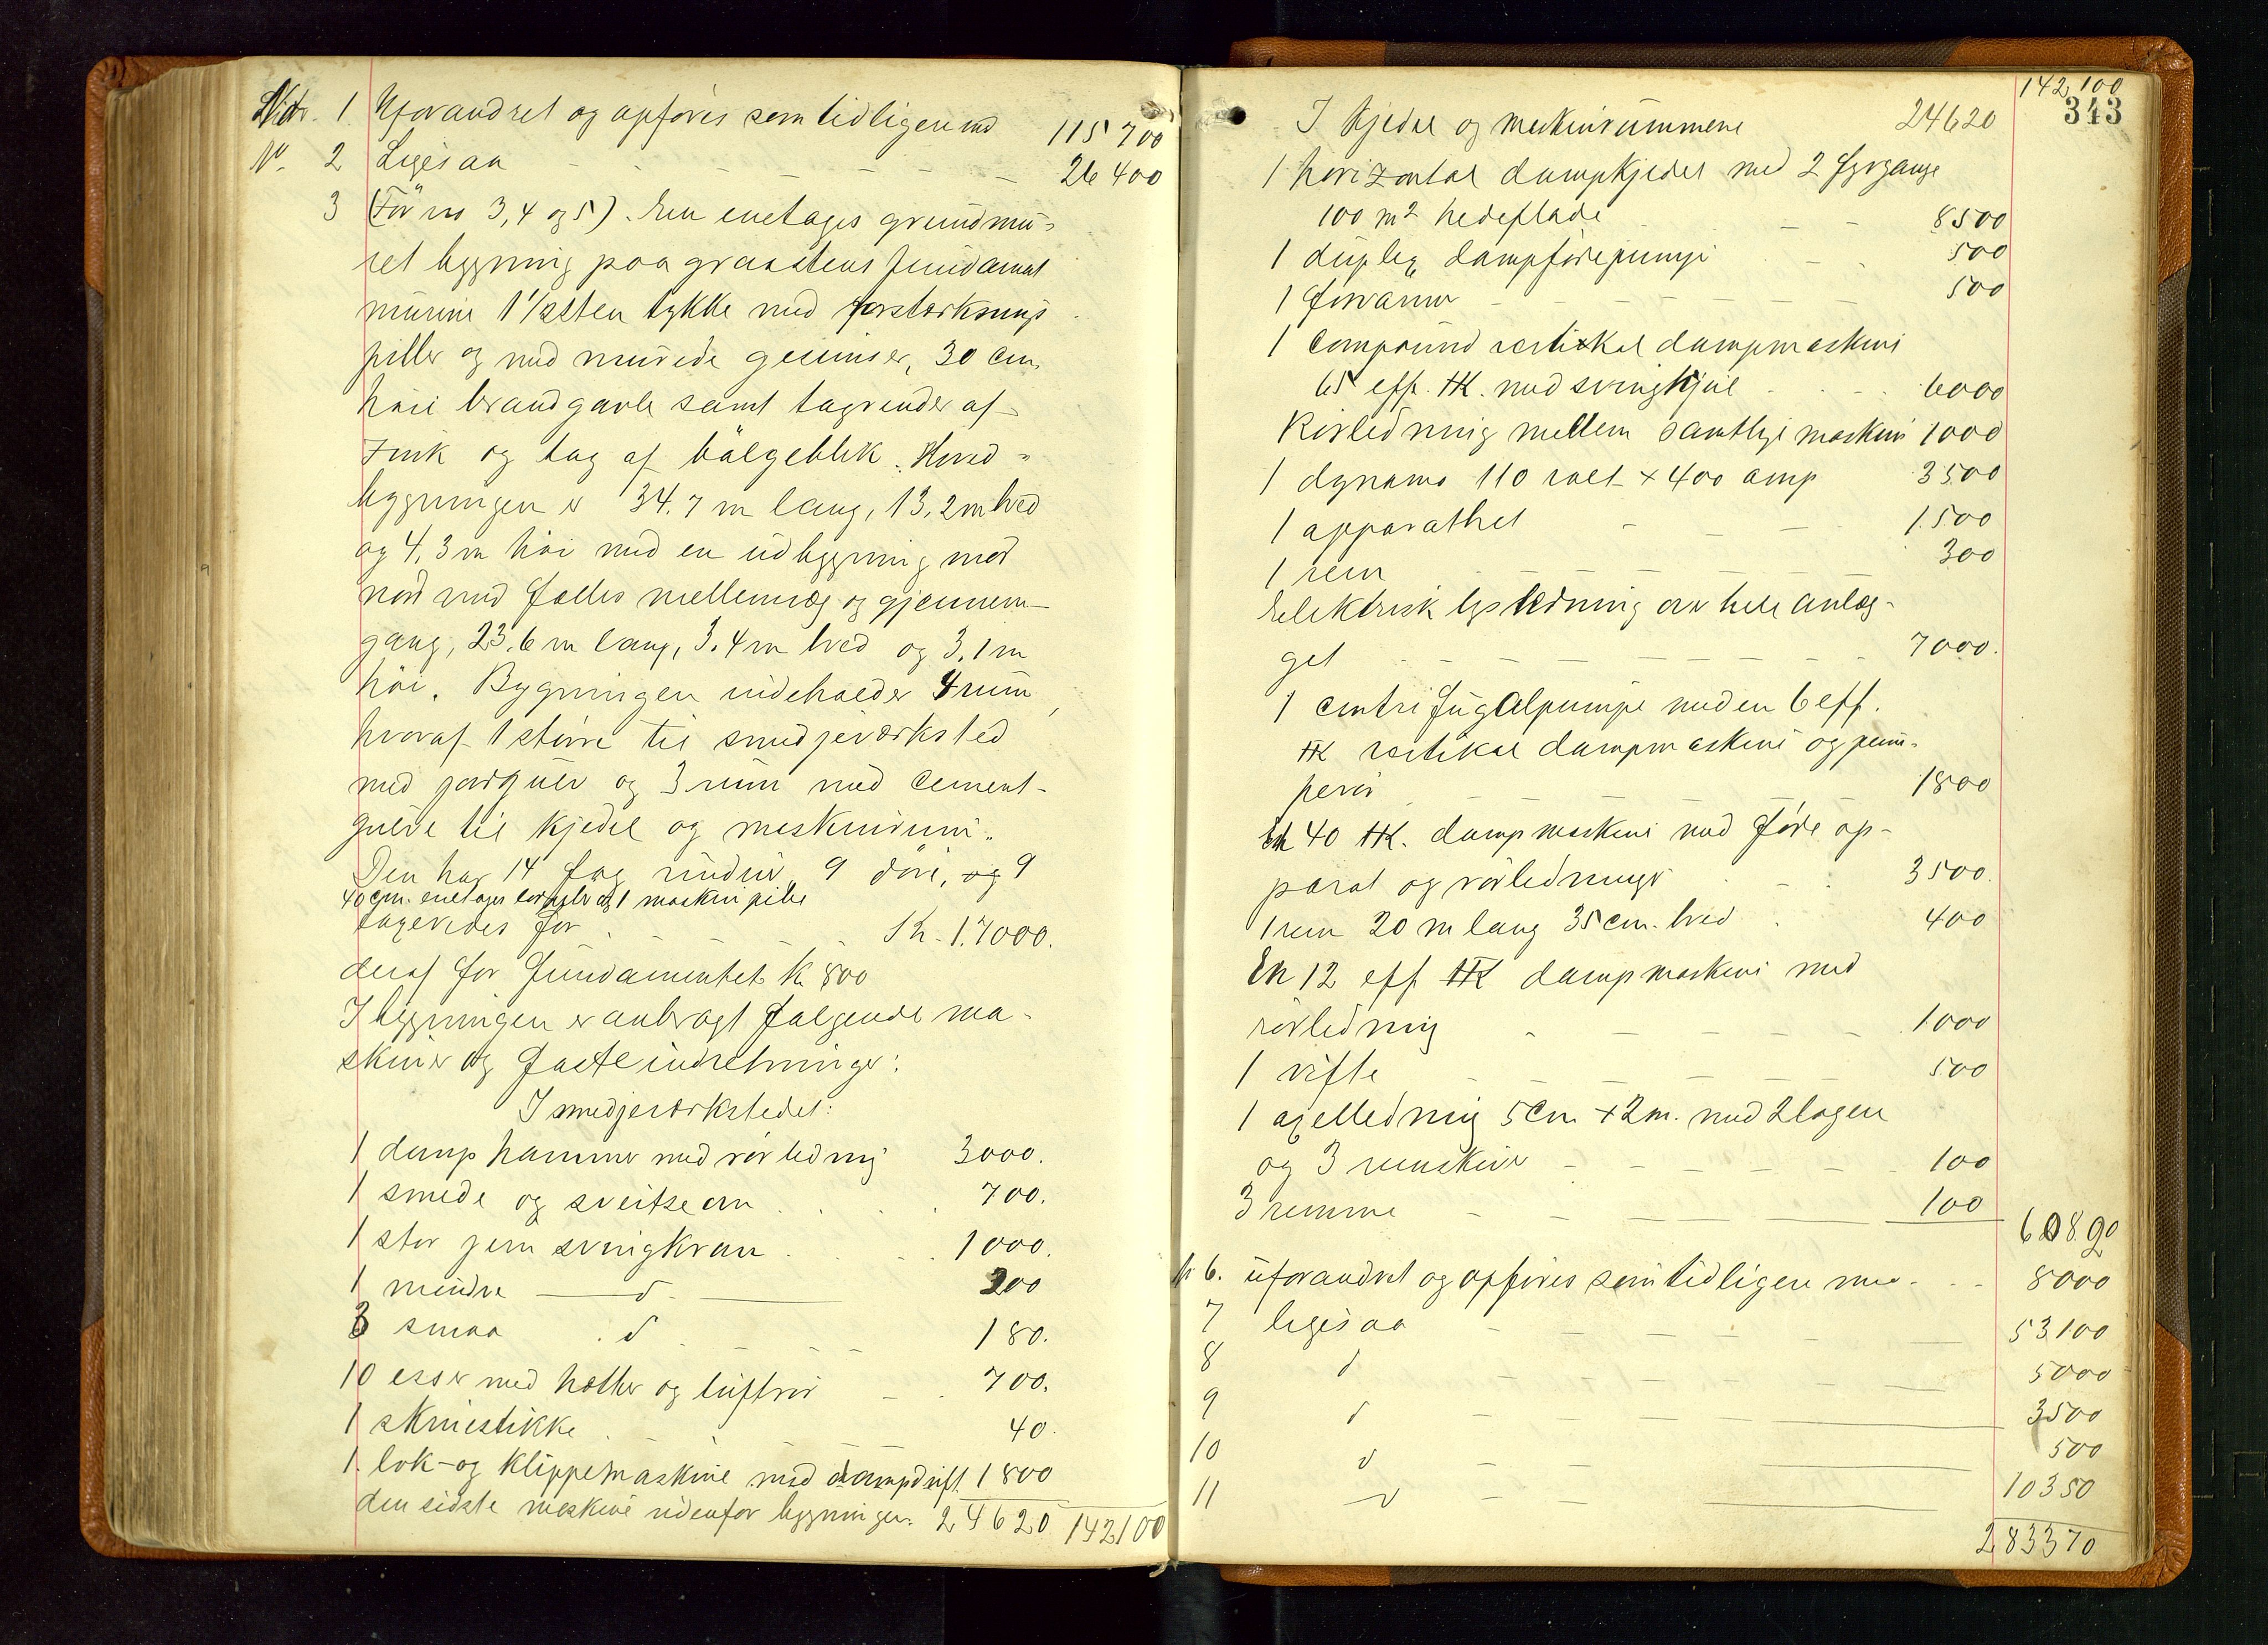 Lit. 1 Uforandret og opføres som tidligere med 115 700
N. 2 Ligesaa 26 400
3 (Før no 3, 4 og 5). En enetages grundmu-
ret bygning paa graastens fundament
murene 1 1/2 sten tykke med forstærknings
piller og med murede gesimser, 30 cm.
høie brandgavle samt tagrender af
zink og tag af bølgeblik. Hoved-
bygningen er 34.7 m lang, 13,2 m bred
og 4,3 m høi med en udbygning mod
nord med fælles mellemvæg og gjennem-
gang, 23.6 m lang, 3.4 m bred og 3.1 m
høi. Bygningen indeholder 4 rum,
hvoraf 1 større til smedjeværksted
med jordgulv og 3 rum med cement-
gulve til kjedel og maskinrum.
Den har 14 fag vinduer, 9 døre, og 9
40 cm. enetages og 1 maskin pibe
tageredes for Kr. 17000.
deraf for fundamentet k 800
I bygningen er anbragt følgende ma-
skiner og faste indretninger:
I smedjeværkstedet:
1 damphammer med rørledning 3000.
1 smede og sveitseovn 700.
1 stor jern svingkran 1000.
1 mindre d. 200
3 smaa d 180.
10 esser med hætter og luftrør 700.
1 skruestikke 40.
1. lok- og klippemaskine med dampdrift 1800
den sidste maskine udenfor bygningen. 24620 142100
142,100
343
I kjedel og maskinrummene 24620
1 horizontal dampkjedel med 2 fyrgange
100 m2 hedeflade 8500
1 duplex dampfødepumpe 500
1 forvarmer 500
1 compound vertikal dampmaskine
65 eff. HK. med svinghjul 6000
Rørledning mellem samtlige maskiner 1000
1 dynamo 110 volt x 400 amp 3500
1 apparattavle 1.500
1 rem 300
Elektrisk lysledning over hele anlæg-
get 7000.
1 centrifugalpumpe med en 6 eff.
HK vertikal dampmaskine og pum-
perør 1800
En 40 HK. dampmaskine med føde ap-
parat og rørledninger 3500.
1 rem 20 m lang 35 cm. bred 400
En 12 eff HK dampmaskine med
rørledning 1000
1 vifte 500
1 axelledning 5 cm x 2 m. med 2 lagere
og 3 remskiver 100
3 remme 100 60820
N 6. uforandret og opføres som tidligere med 8000
7 ligesaa 53100
8 d 5000
9 d 3500
10 d 500
11 d 10350
283370